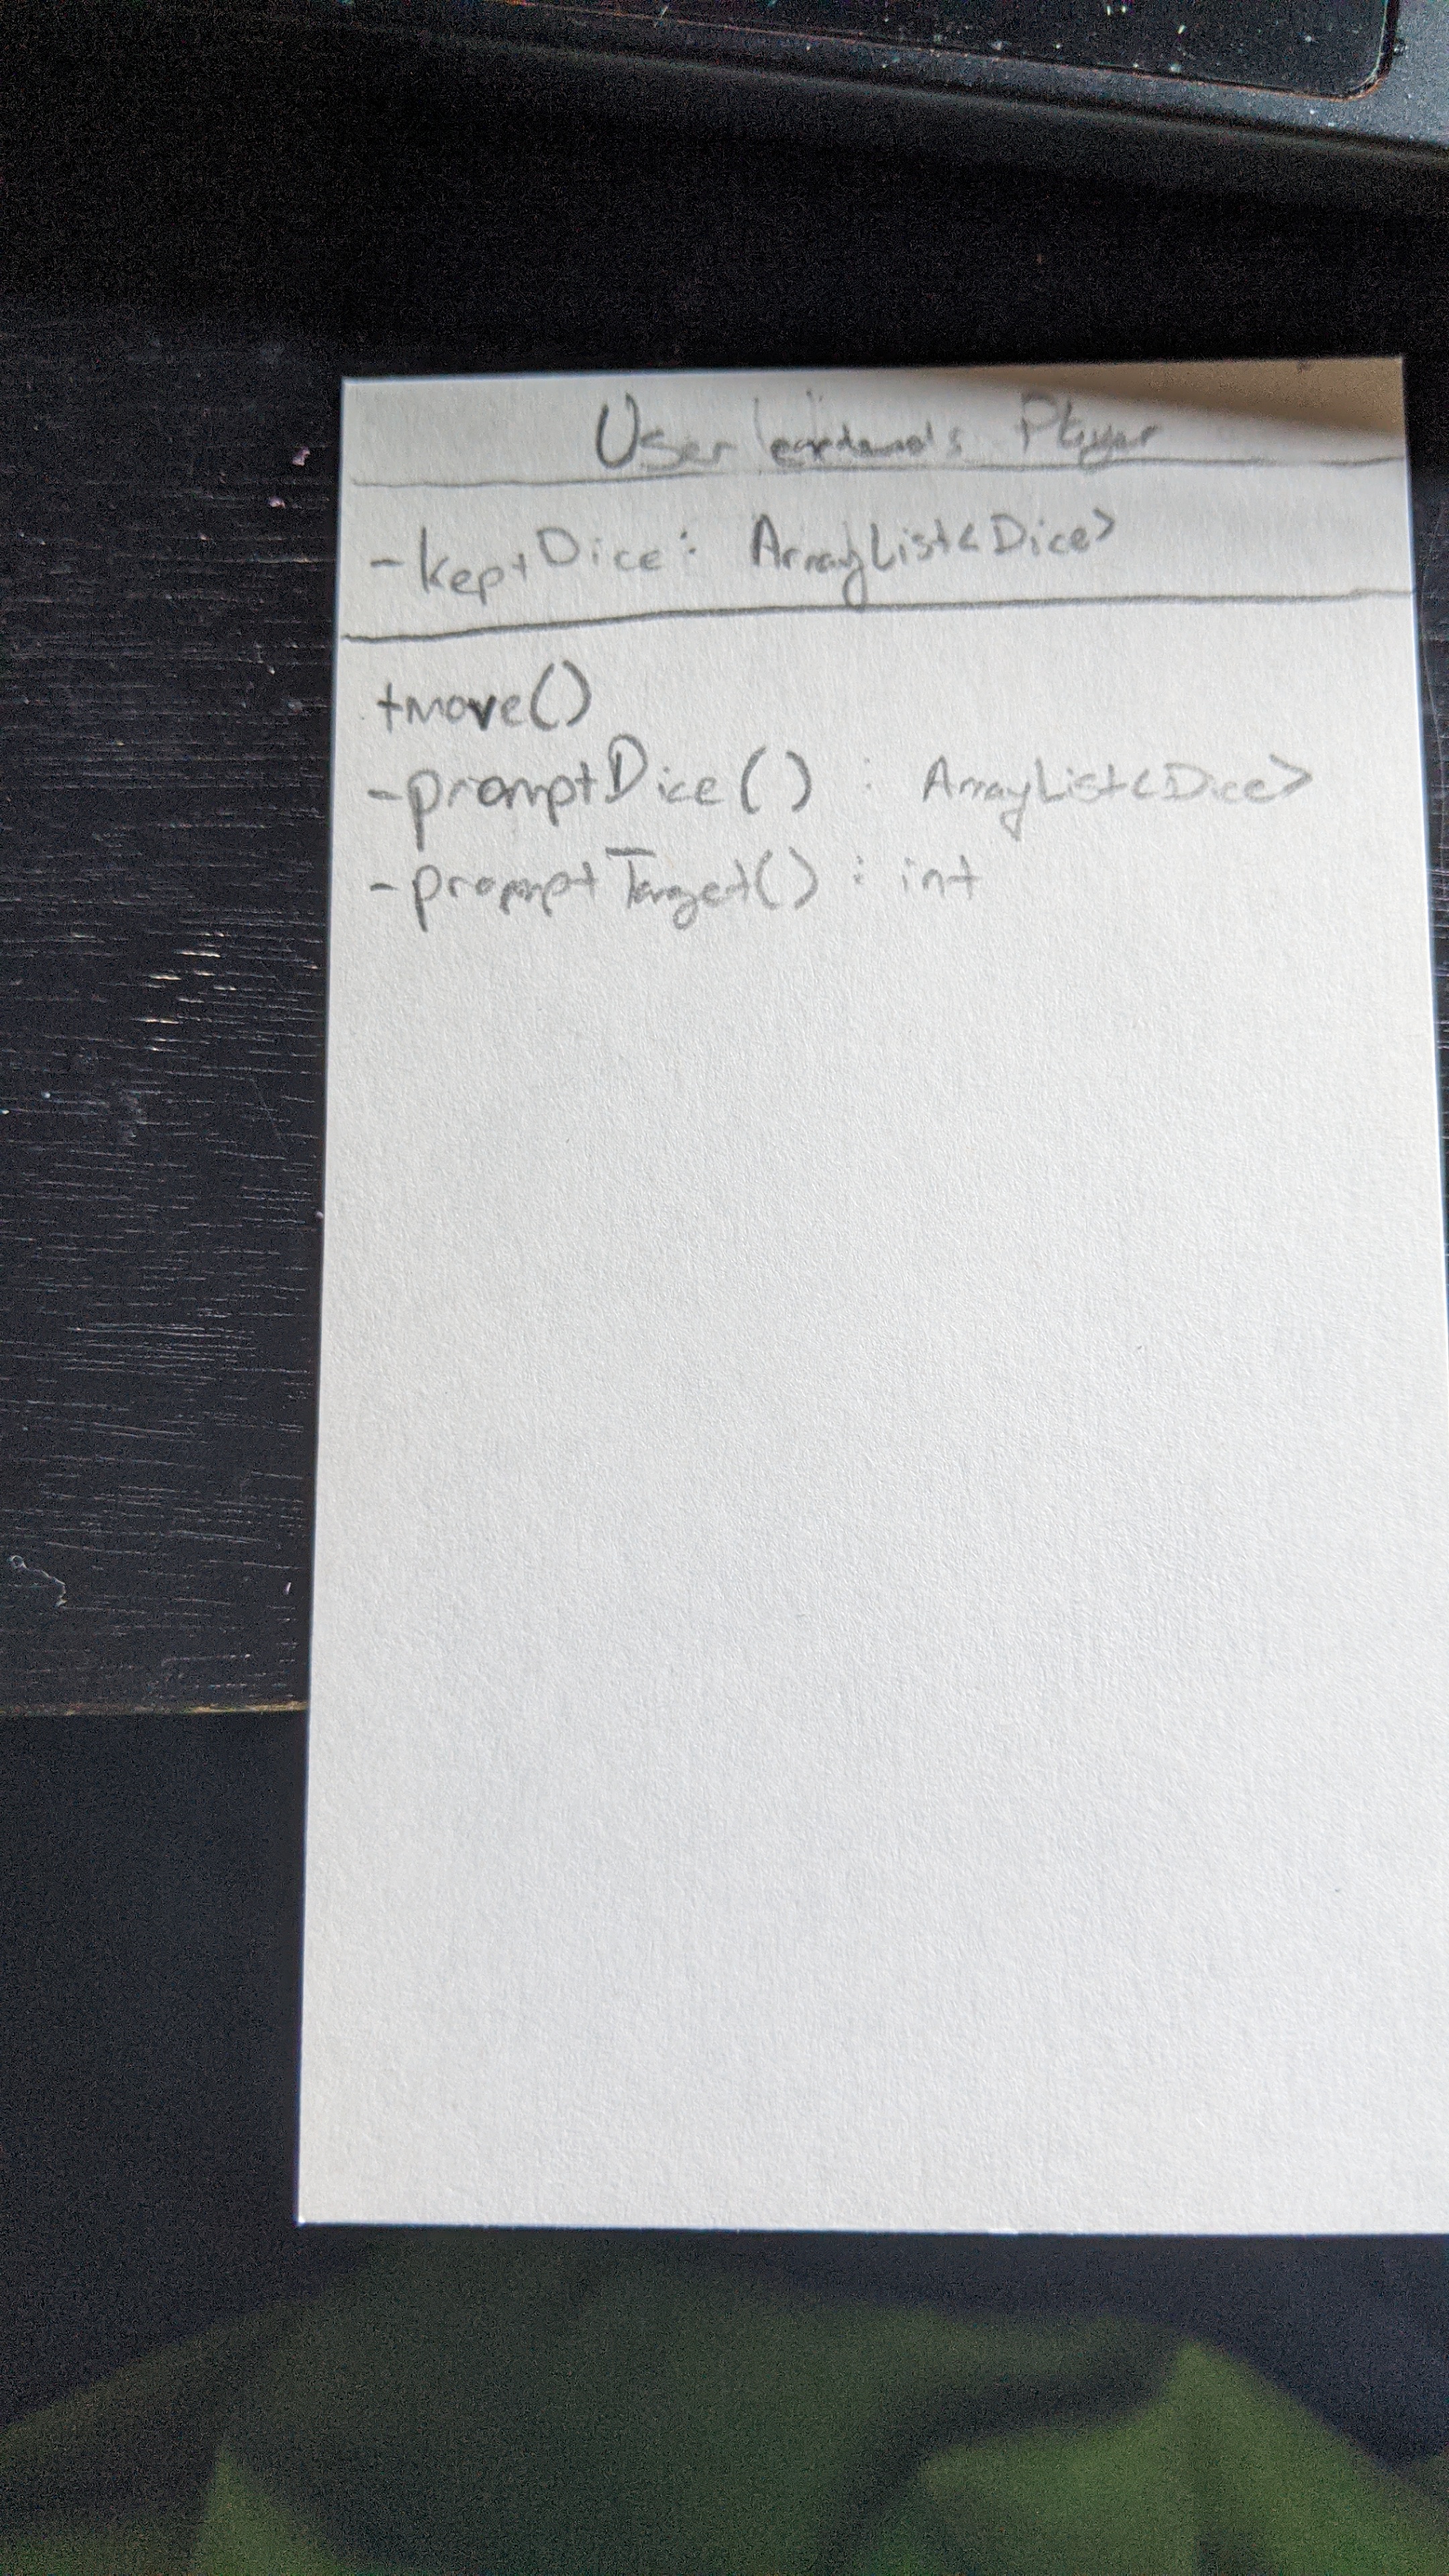 User extends Player
-keptDice: ArrayList<Dice>
+move()
-promptDice() : ArrayList<Dice>
-promptTarget() : int